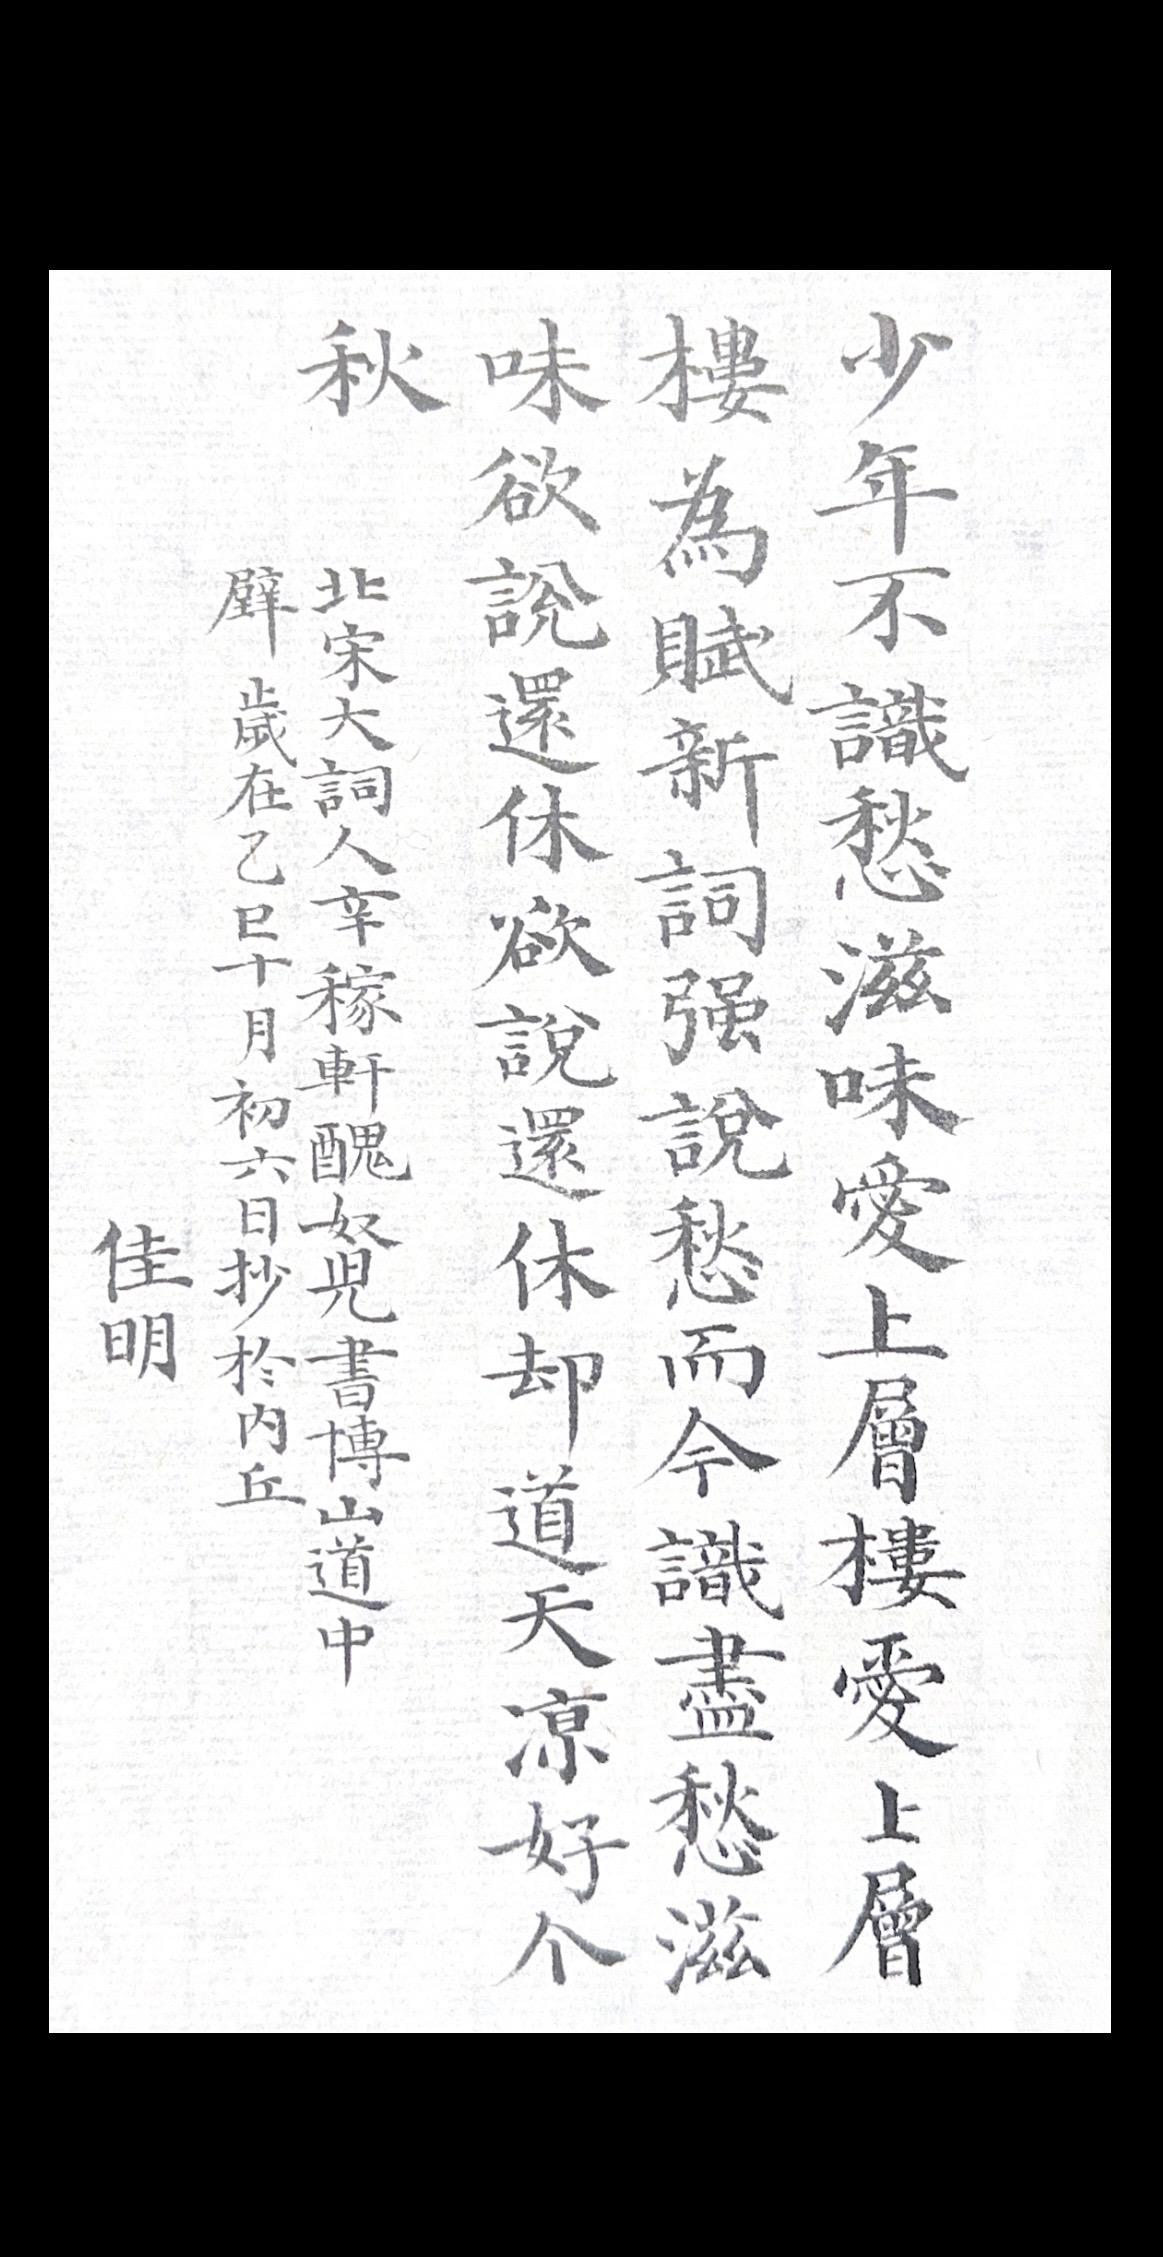 少年不識愁滋味愛上層樓愛上層
樓為賦新詞强說愁而今識盡愁滋
味欲說還休欲說還休却道天凉好个
秋
北宋大詞人辛稼軒醜奴兒書博山道中
壁歲在乙巳十月初六日抄於内丘
佳明